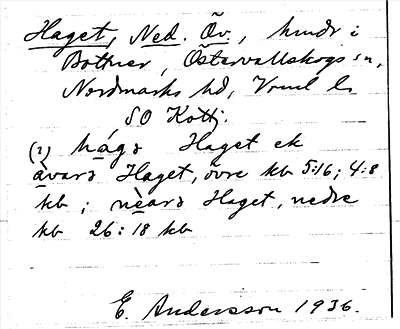 Haget, Ned. Öv., hmdr i
Bottner, Östervallskogs sn,
Nordmarks hd, Vrml l.
SO Kottj.
(2) hágə Haget ek
ǻvarə Haget, övre kb 5:16; 4:8
kb; nèarə Haget, nedre
kb 26:18 kb
E. Andersson 1936.